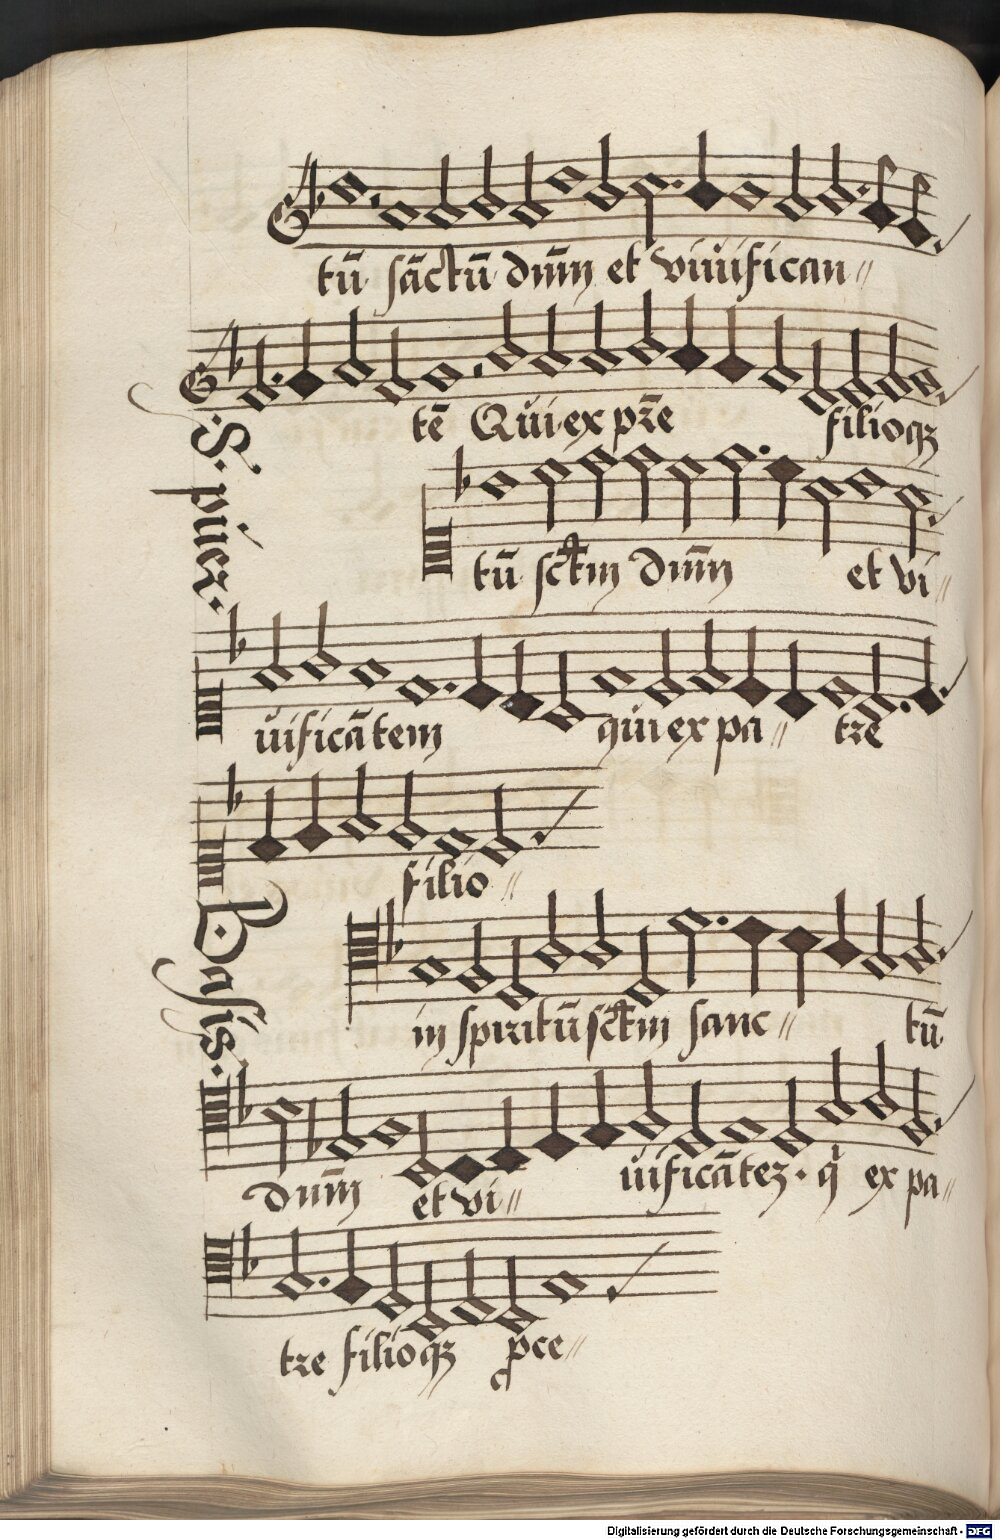 tū sāctū dn̄m et viuifican〃
tē Qui ex pr̄e filioqȝ
S. puer.
tū sctm dn̄m et vi〃
uificātem qui ex pa〃 tre
filio〃
Basis.
in spiritū sctm sanc〃 tū
dn̄m et vi〃 uificātez. q̇ ex pa〃
tre filioqȝ pce〃
Digitalisierung gefördert durch die Deutsche Forschungsgemeinschaft - DFG